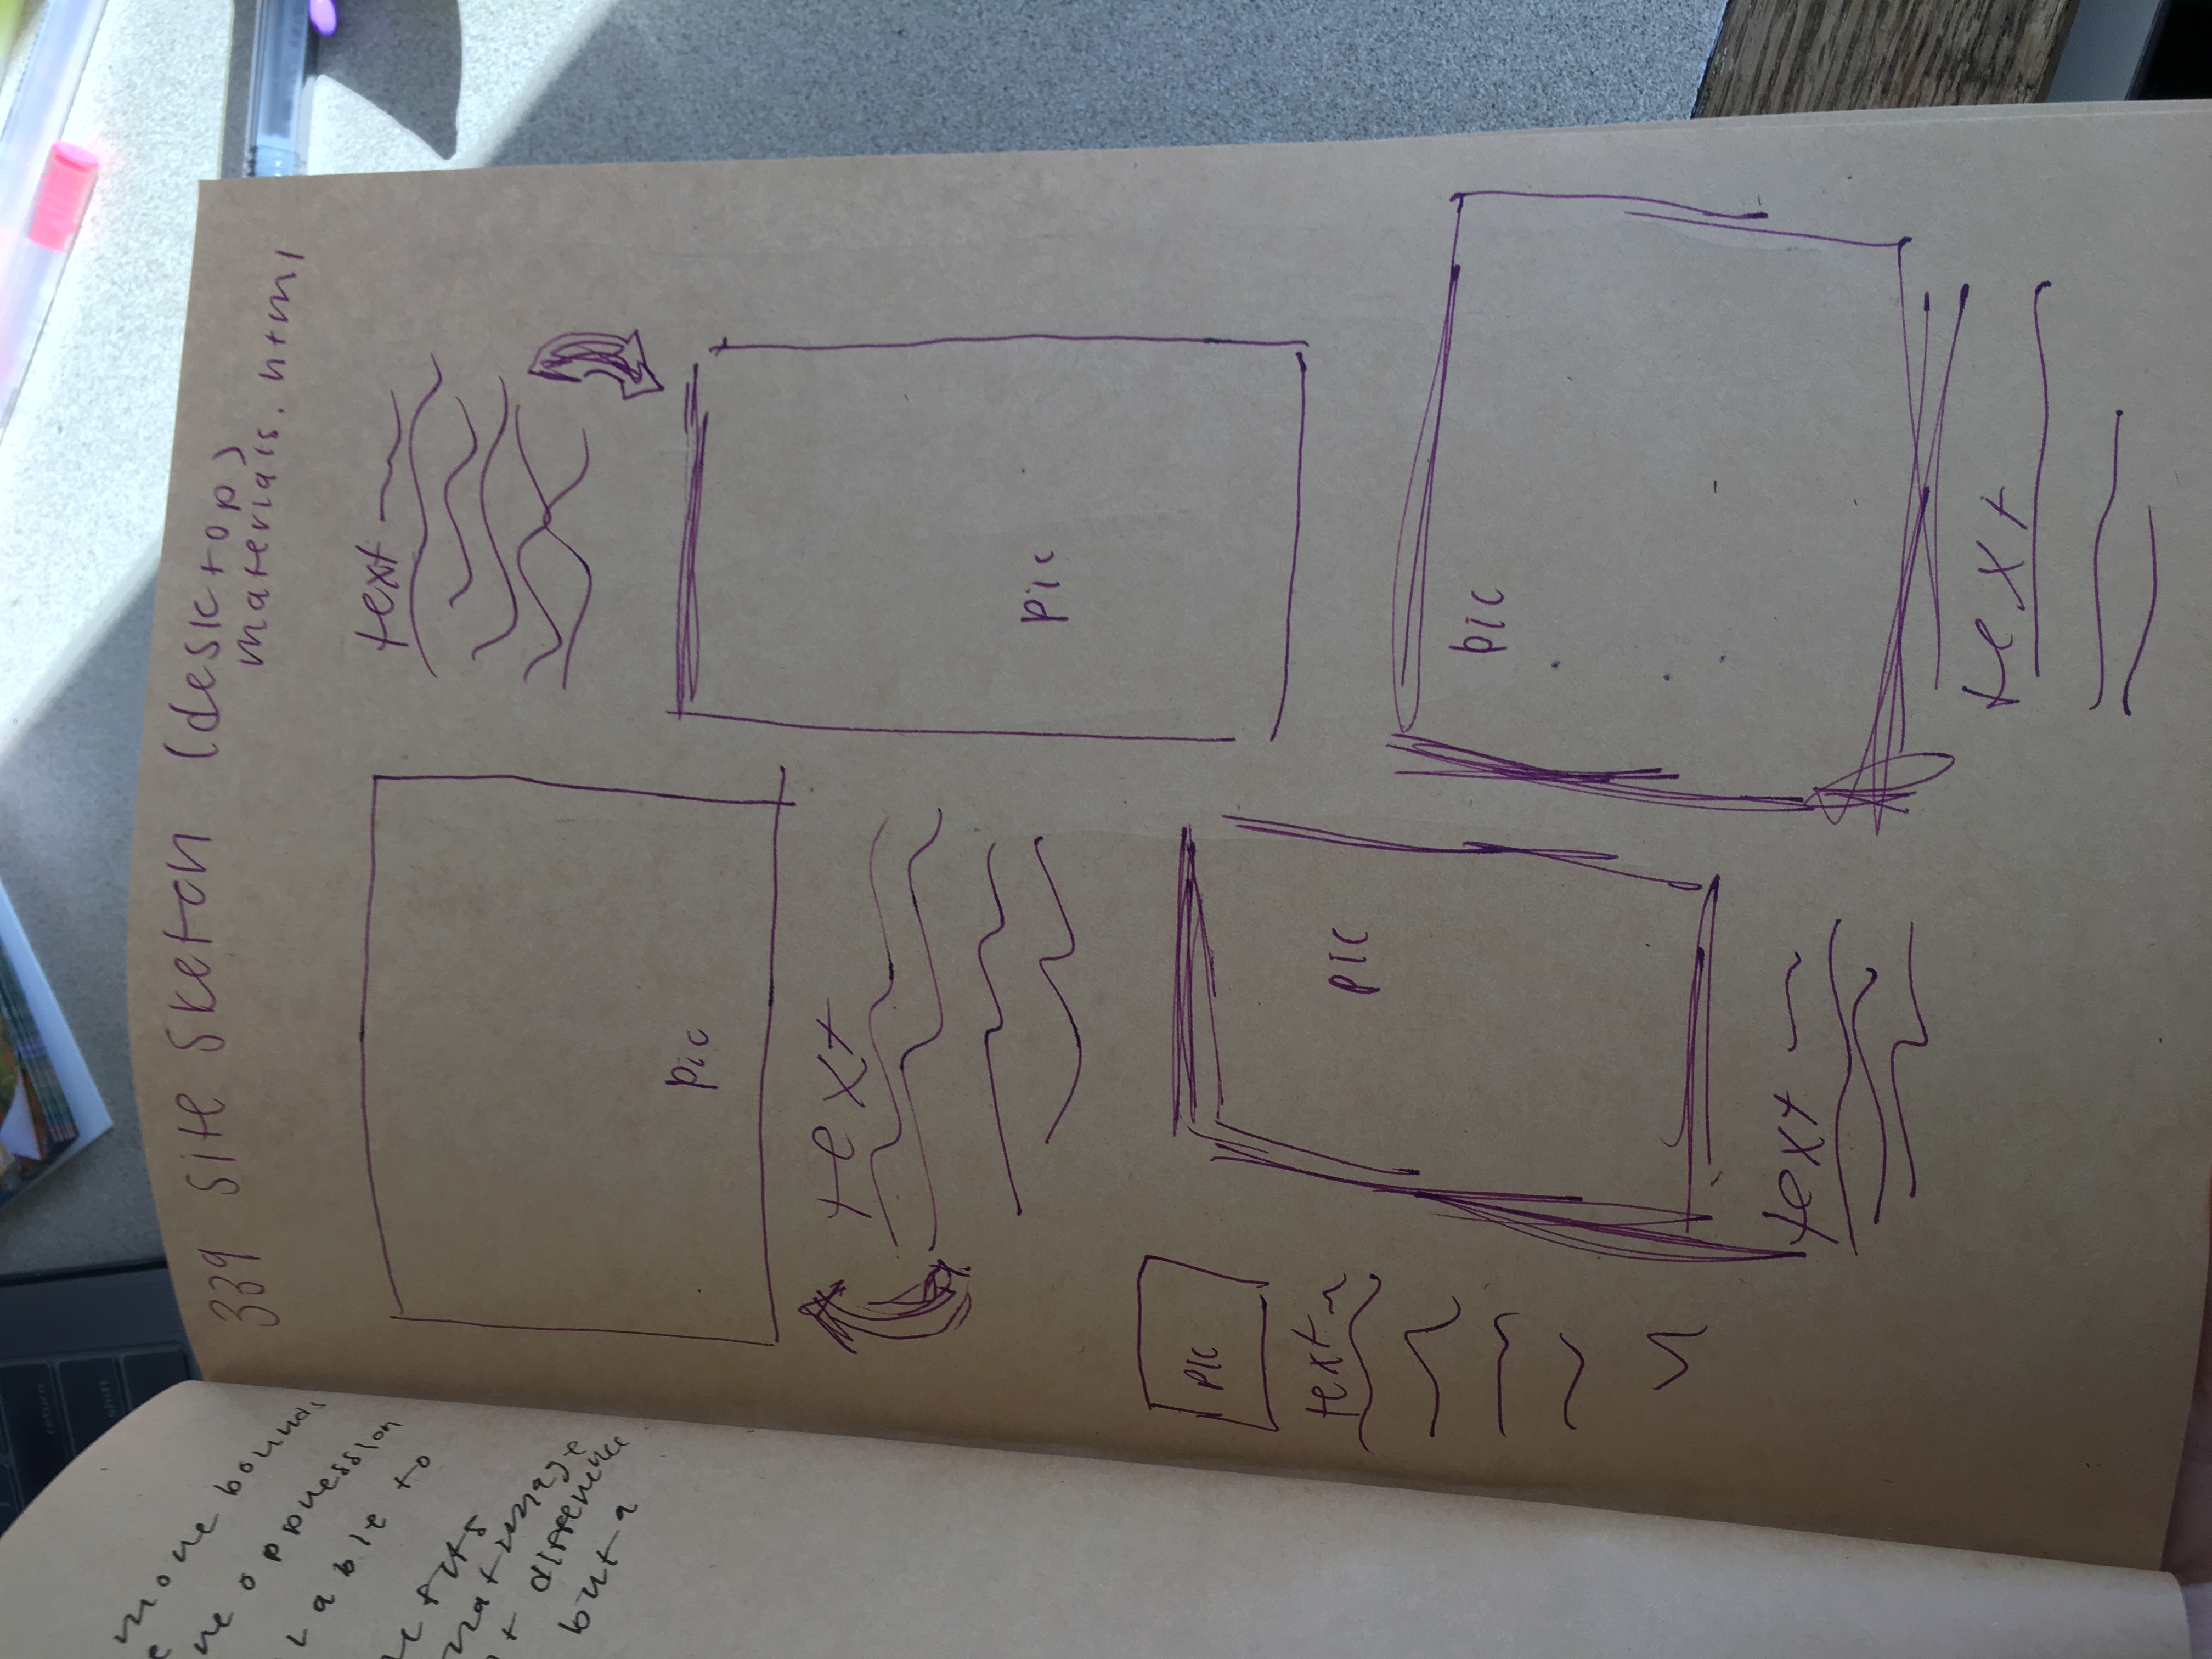 return
shift
more bounds
ne oppression
able to
but a
difference
339 Site Sketch (desktop)
materials.html
text
pic
text
pic
pic
text
pic
pic
text
text